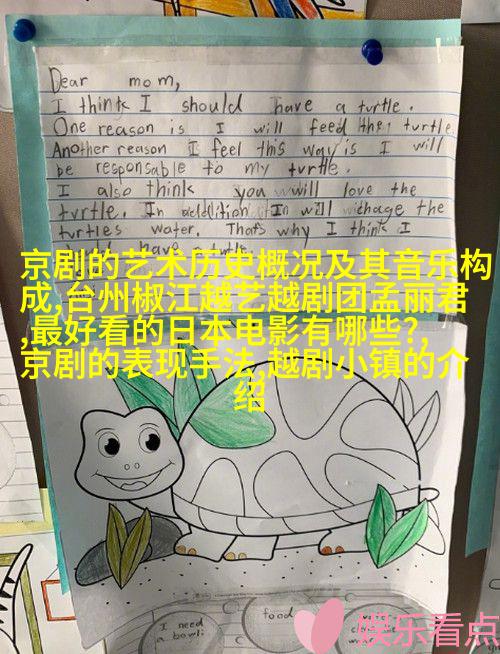 Dear mom,
I think I should have a turtle.
One reason is I will feed the turtle.
Another reason I feel this way is I will
be responsable to my turtle.
I also think you will love the
turtle. In addition I will chage the
turtles water. Thats why I think I
should have a turtle
京剧的艺术历史概况及其音乐构
成,台州椒江越艺越剧团孟丽君
,最好看的日本电影有哪些?,
京剧的表现手法,越剧小镇的介
绍
I need
a bowl
food
娱乐看点